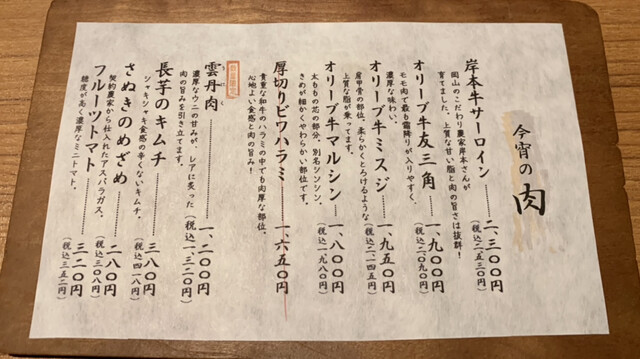 今宵の肉
岸本牛サーロイン 二、三〇〇円
岡山のこだわり農家岸本さんが
育てました。上質な甘い脂と肉の旨さは抜群!
(税込二、五三〇円)
オリーブ牛友三角 一、九〇〇円
モモ肉で最も霜降りが入りやすく、
濃厚な味わい。
(税込二、〇九〇円)
オリーブ牛ミスジ 一、九五〇円
肩甲骨の部位。柔らかくとろけるような
上質な脂が乗ってます。
(税込二、一四五円)
オリーブ牛マルシン 一、八〇〇円
太ももの芯の部分、別名シンシン。
きめが細かくやわらかい部位です。
(税込一、九八〇円)
厚切りビワハラミ 一、六五〇円
貴重な和牛のハラミの中でも肉厚な部位。
心地よい食感と肉の旨み!
数量限定
雲丹肉 一、二〇〇円
濃厚なウニの甘みが、レアに炙った
肉の旨みを引き立てます。
(税込一、三二〇円)
長芋のキムチ 三八〇円
シャキシャキ食感の辛くないキムチ。
(税込四一八円)
さぬきのめざめ 二八〇円
契約農家から仕入れたアスパラガス。
(税込三〇八円)
フルーツトマト 三二〇円
糖度が高く濃厚なミニトマト。
(税込三五二円)